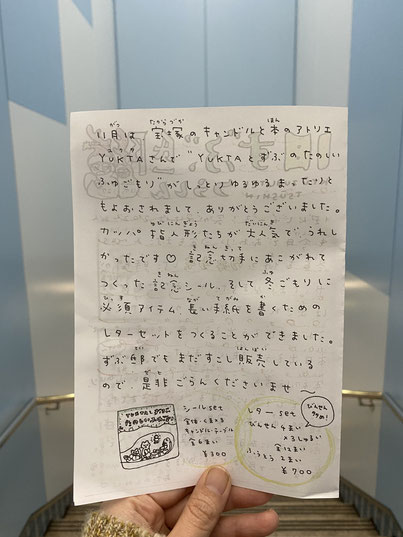 11月は 宝塚のキャンドルと本のアトリエ
YUKTAさんで"YUKTAとずぶのたのしい
ふゆごもり"がしっとりゆるゆるまったりと
もよおされまして、ありがとうございました。
カッパ指人形たちが大人気で、うれし
かったです♡ 記念切手にあこがれて
つくった記念シール、そして冬ごもりに
必須アイテム 長い手紙を書くための
レターセットをつくることができました。
ずぶ邸でもまだすこし販売している
ので、是非ごらんくださいませ〜
シールset
全6まい
¥300
レターset
びんせん 4まい
×3しゅるい
全12まい
ふうとう 2まい
¥700
びんせん